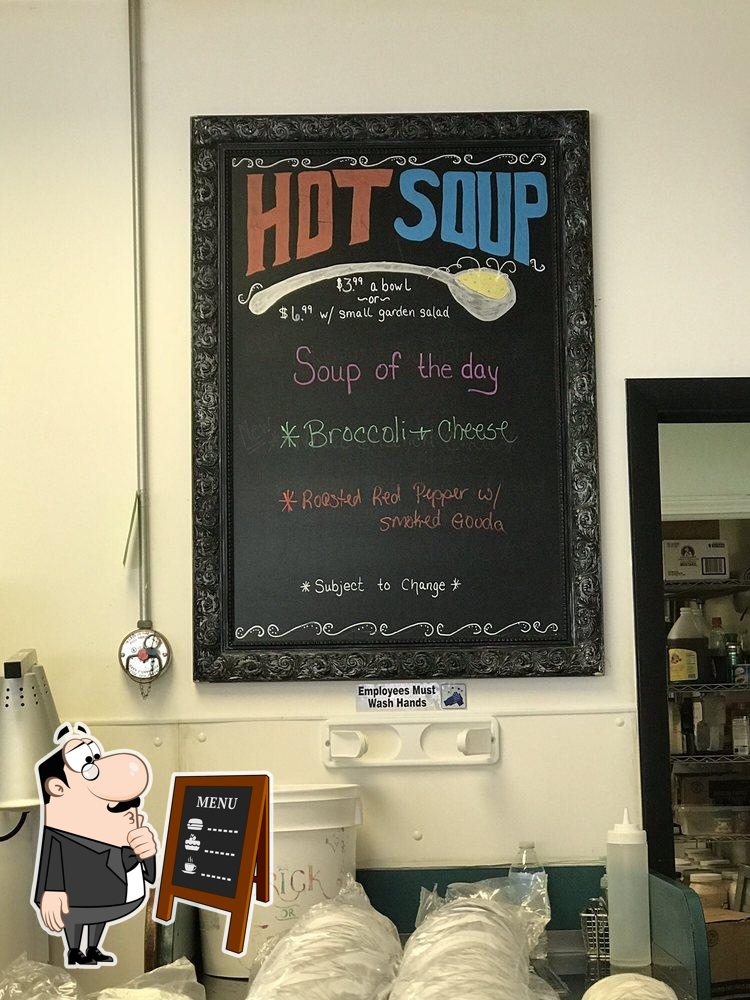 HOT SOUP
$3.99 a bowl
~or~
$6.99 w/ small garden salad
Soup of the day
New! * Broccoli + Cheese
* Roasted Red Pepper w/
smoked Gouda
* Subject to Change *
Employees Must
Wash Hands
MENU
RICK
OR